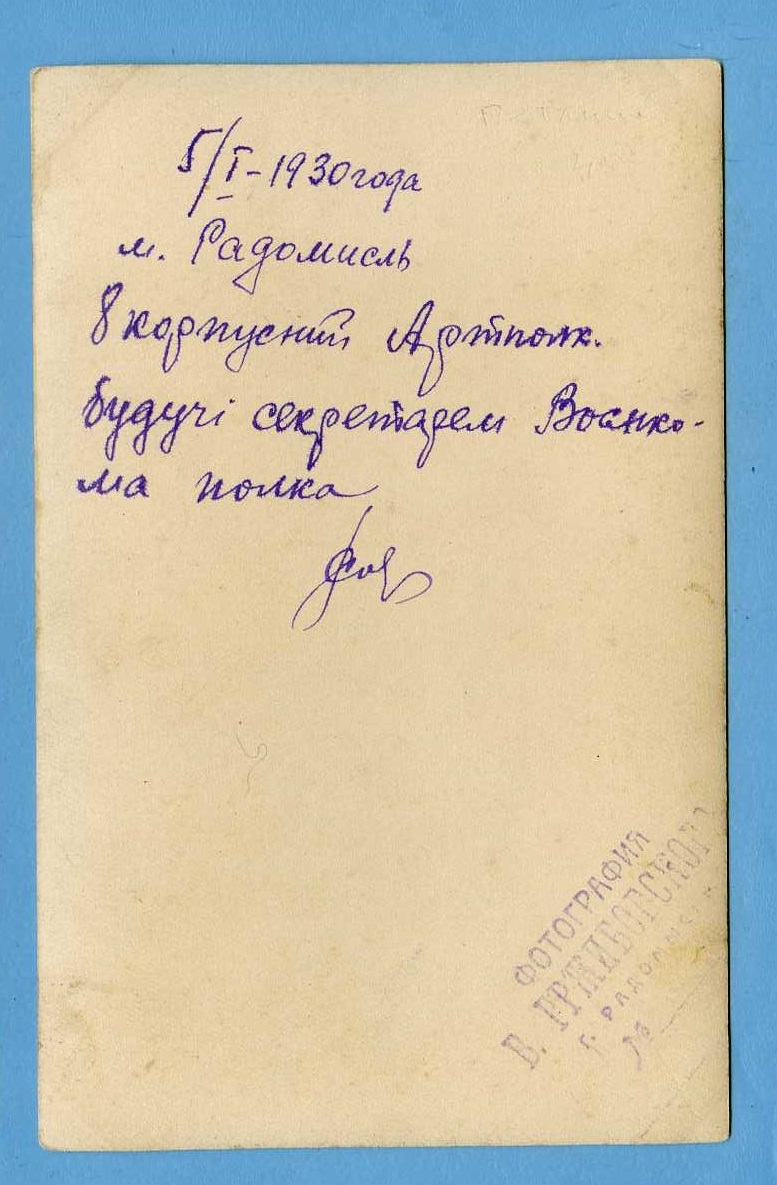 5/I-1930 года
м. Радомисль
8 корпусний Артполк.
будучі секретарем Воєнко-
ма полка
ФОТОГРАФИЯ
В.
Г. РАДОМЫСЛЬ